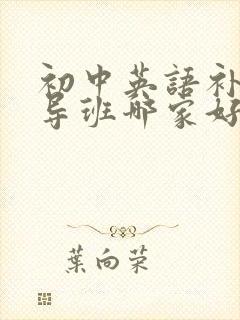 初中英語补
导班哪家好
葉向荣